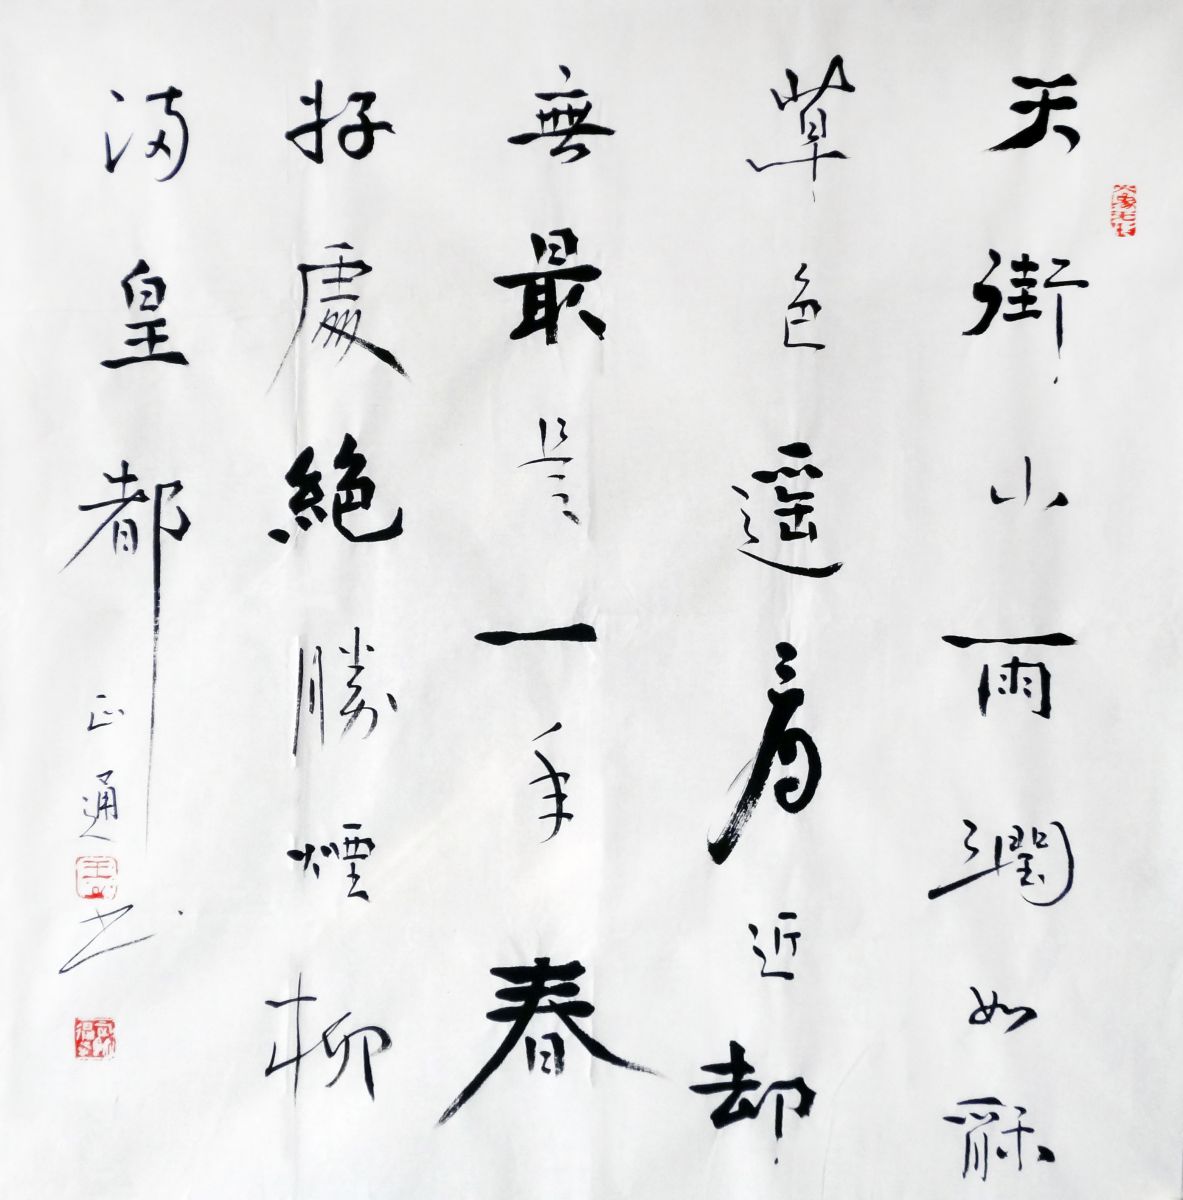 天街小雨潤如酥
草色遥看近却
無最是一年春
好處絕勝煙柳
滿皇都
正通書